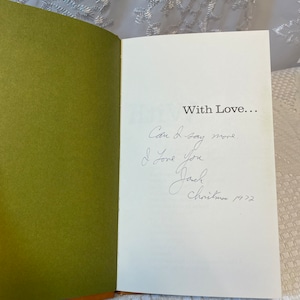 With Love...
Can I say more
I Love You
Jack
Christmas 1972